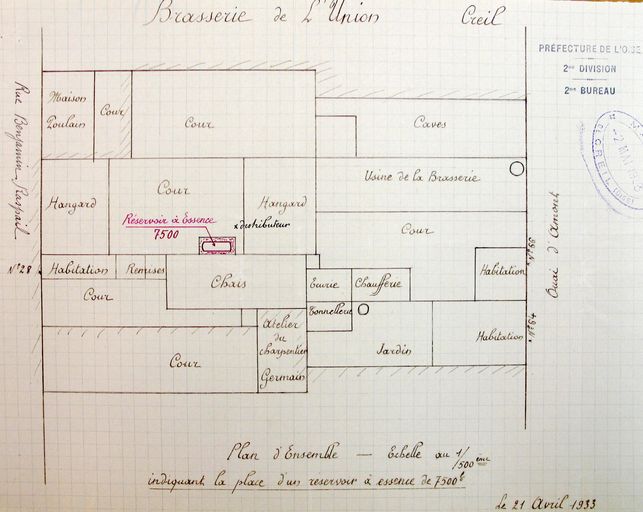 Brasserie de L'Union Creil
PRÉFECTURE DE L'OISE
2me DIVISION
2me BUREAU
Rue Benjamin Raspail
Maison
Poulain
Cour
Cour
Caves
Usine de la Brasserie
Hangard
Cour
Hangard
Cour
Réservoir à Essence
7500
x distributeur
Quai d'Amont
N° 28
Habitation
Remises
Chais
Ecurie
Chaufferie
Habitation
N° 66
Cour
Tonnellerie
Atelier
du
charpentier
Germain
Cour
Jardin
Habitation
N° 64
Plan d'Ensemble — Echelle au 1/500 ème
indiquant la place d'un reservoir à essence de 7500 l
Le 21 Avril 1933